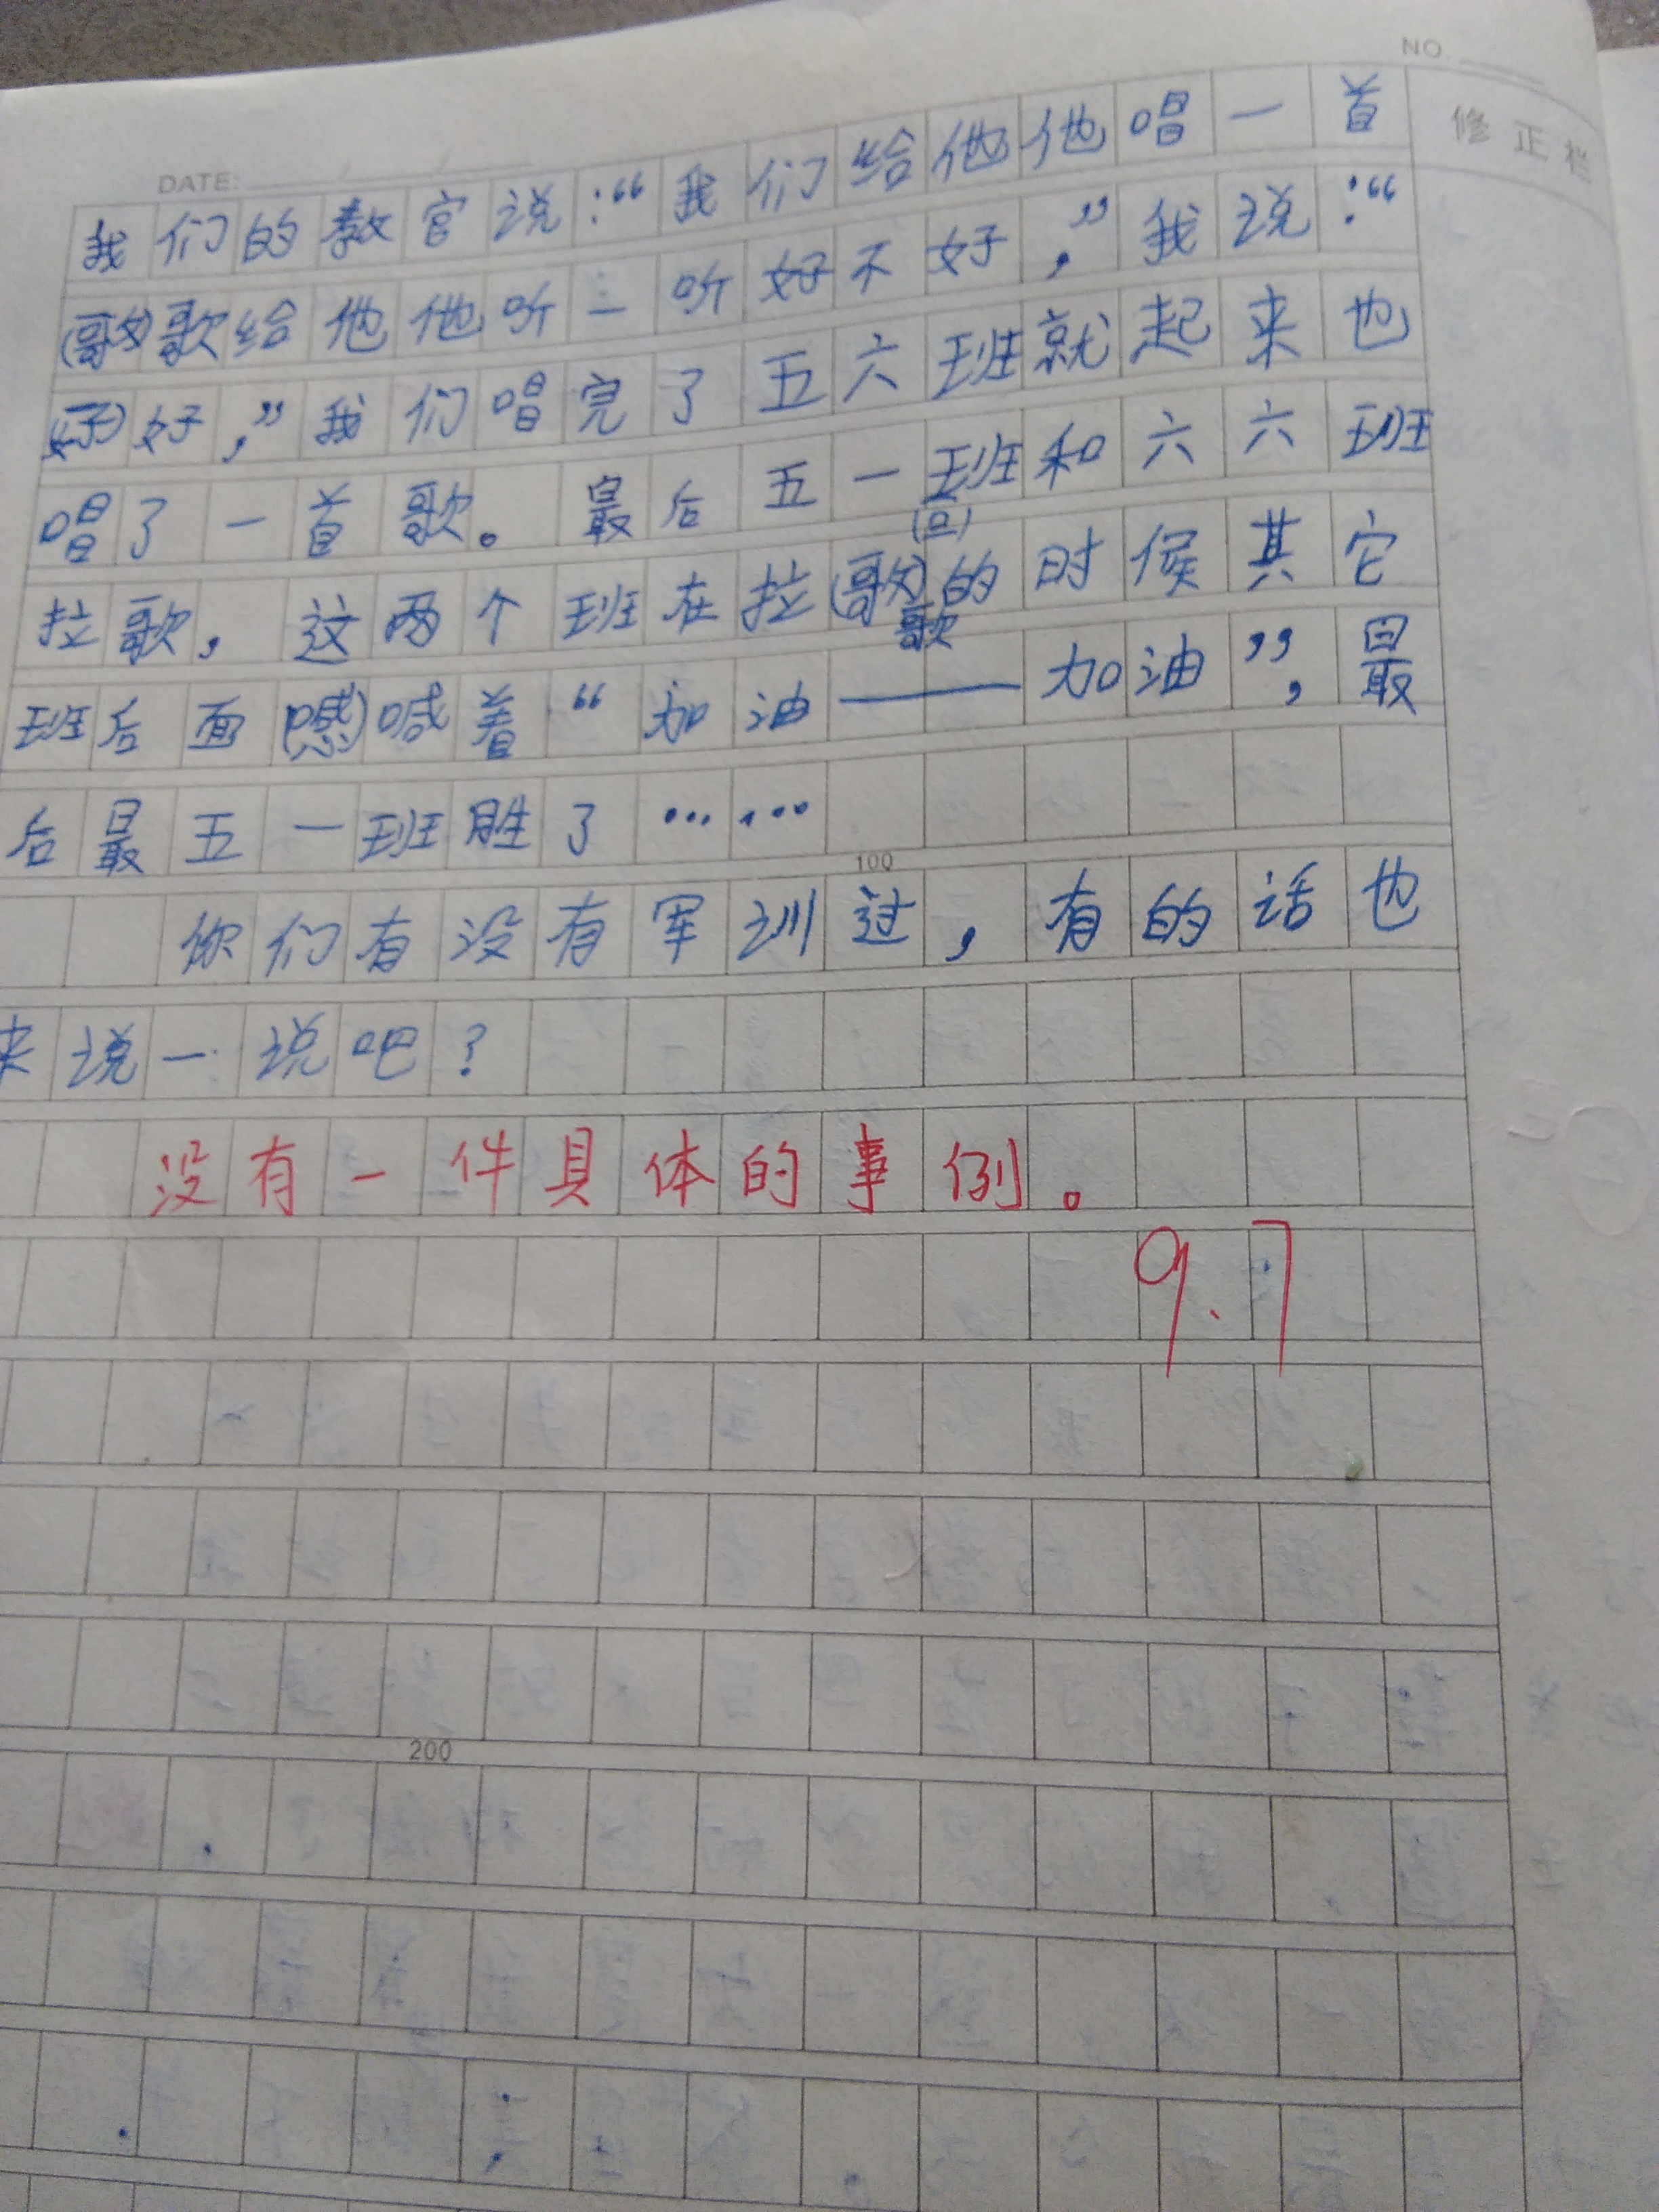 NO.
修正栏
DATE:
我们的教官说:“我们给他他唱一首
(歌)歌给他他听一听好不好,”我说:“
(好)好,”我们唱完了五六班就起来也
唱了一首歌。最后五一班和六六班
拉歌,这两个班在拉(歌)歌的时候其它
班后面(喊)喊着“加油——加油”,最
后最五一班胜了……
100
你们有没有军训过,有的话也
来说一说吧?
没有一件具体的事例。
9.7
200